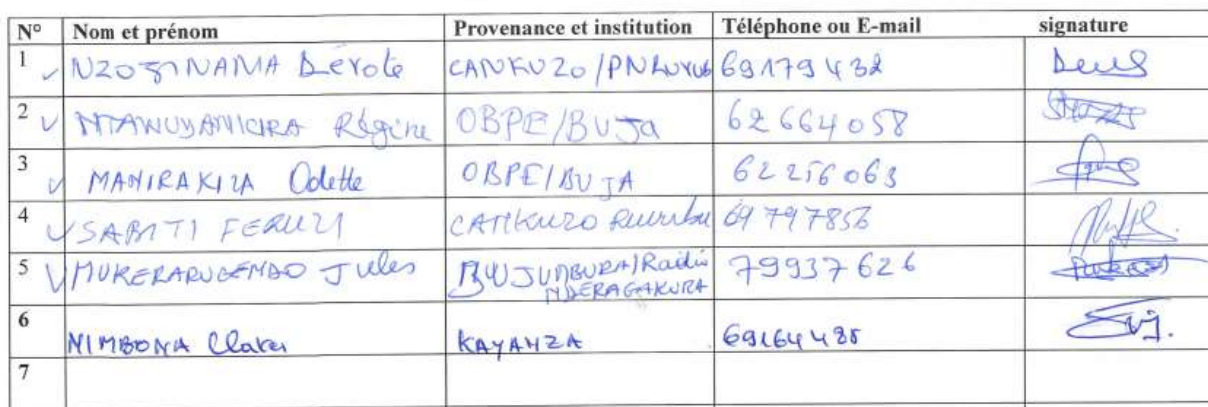 N° Nom et prénom Provenance et institution Téléphone ou E-mail signature
1 NZOJINAMA Dévote CANKUZO / 69179432
2 Régine OBPE/BUJA 62664058
3 MANIRAKIZA Odette OBPE/BUJA 62256063
4 SABITI FERUZI CANKUZO 69797856
5 MUKERARUGENDO Jules BUJUMBURA/Radio 79937626
NDERAGAKURA
6 NIMBONA Claver KAYANZA 69164485
7